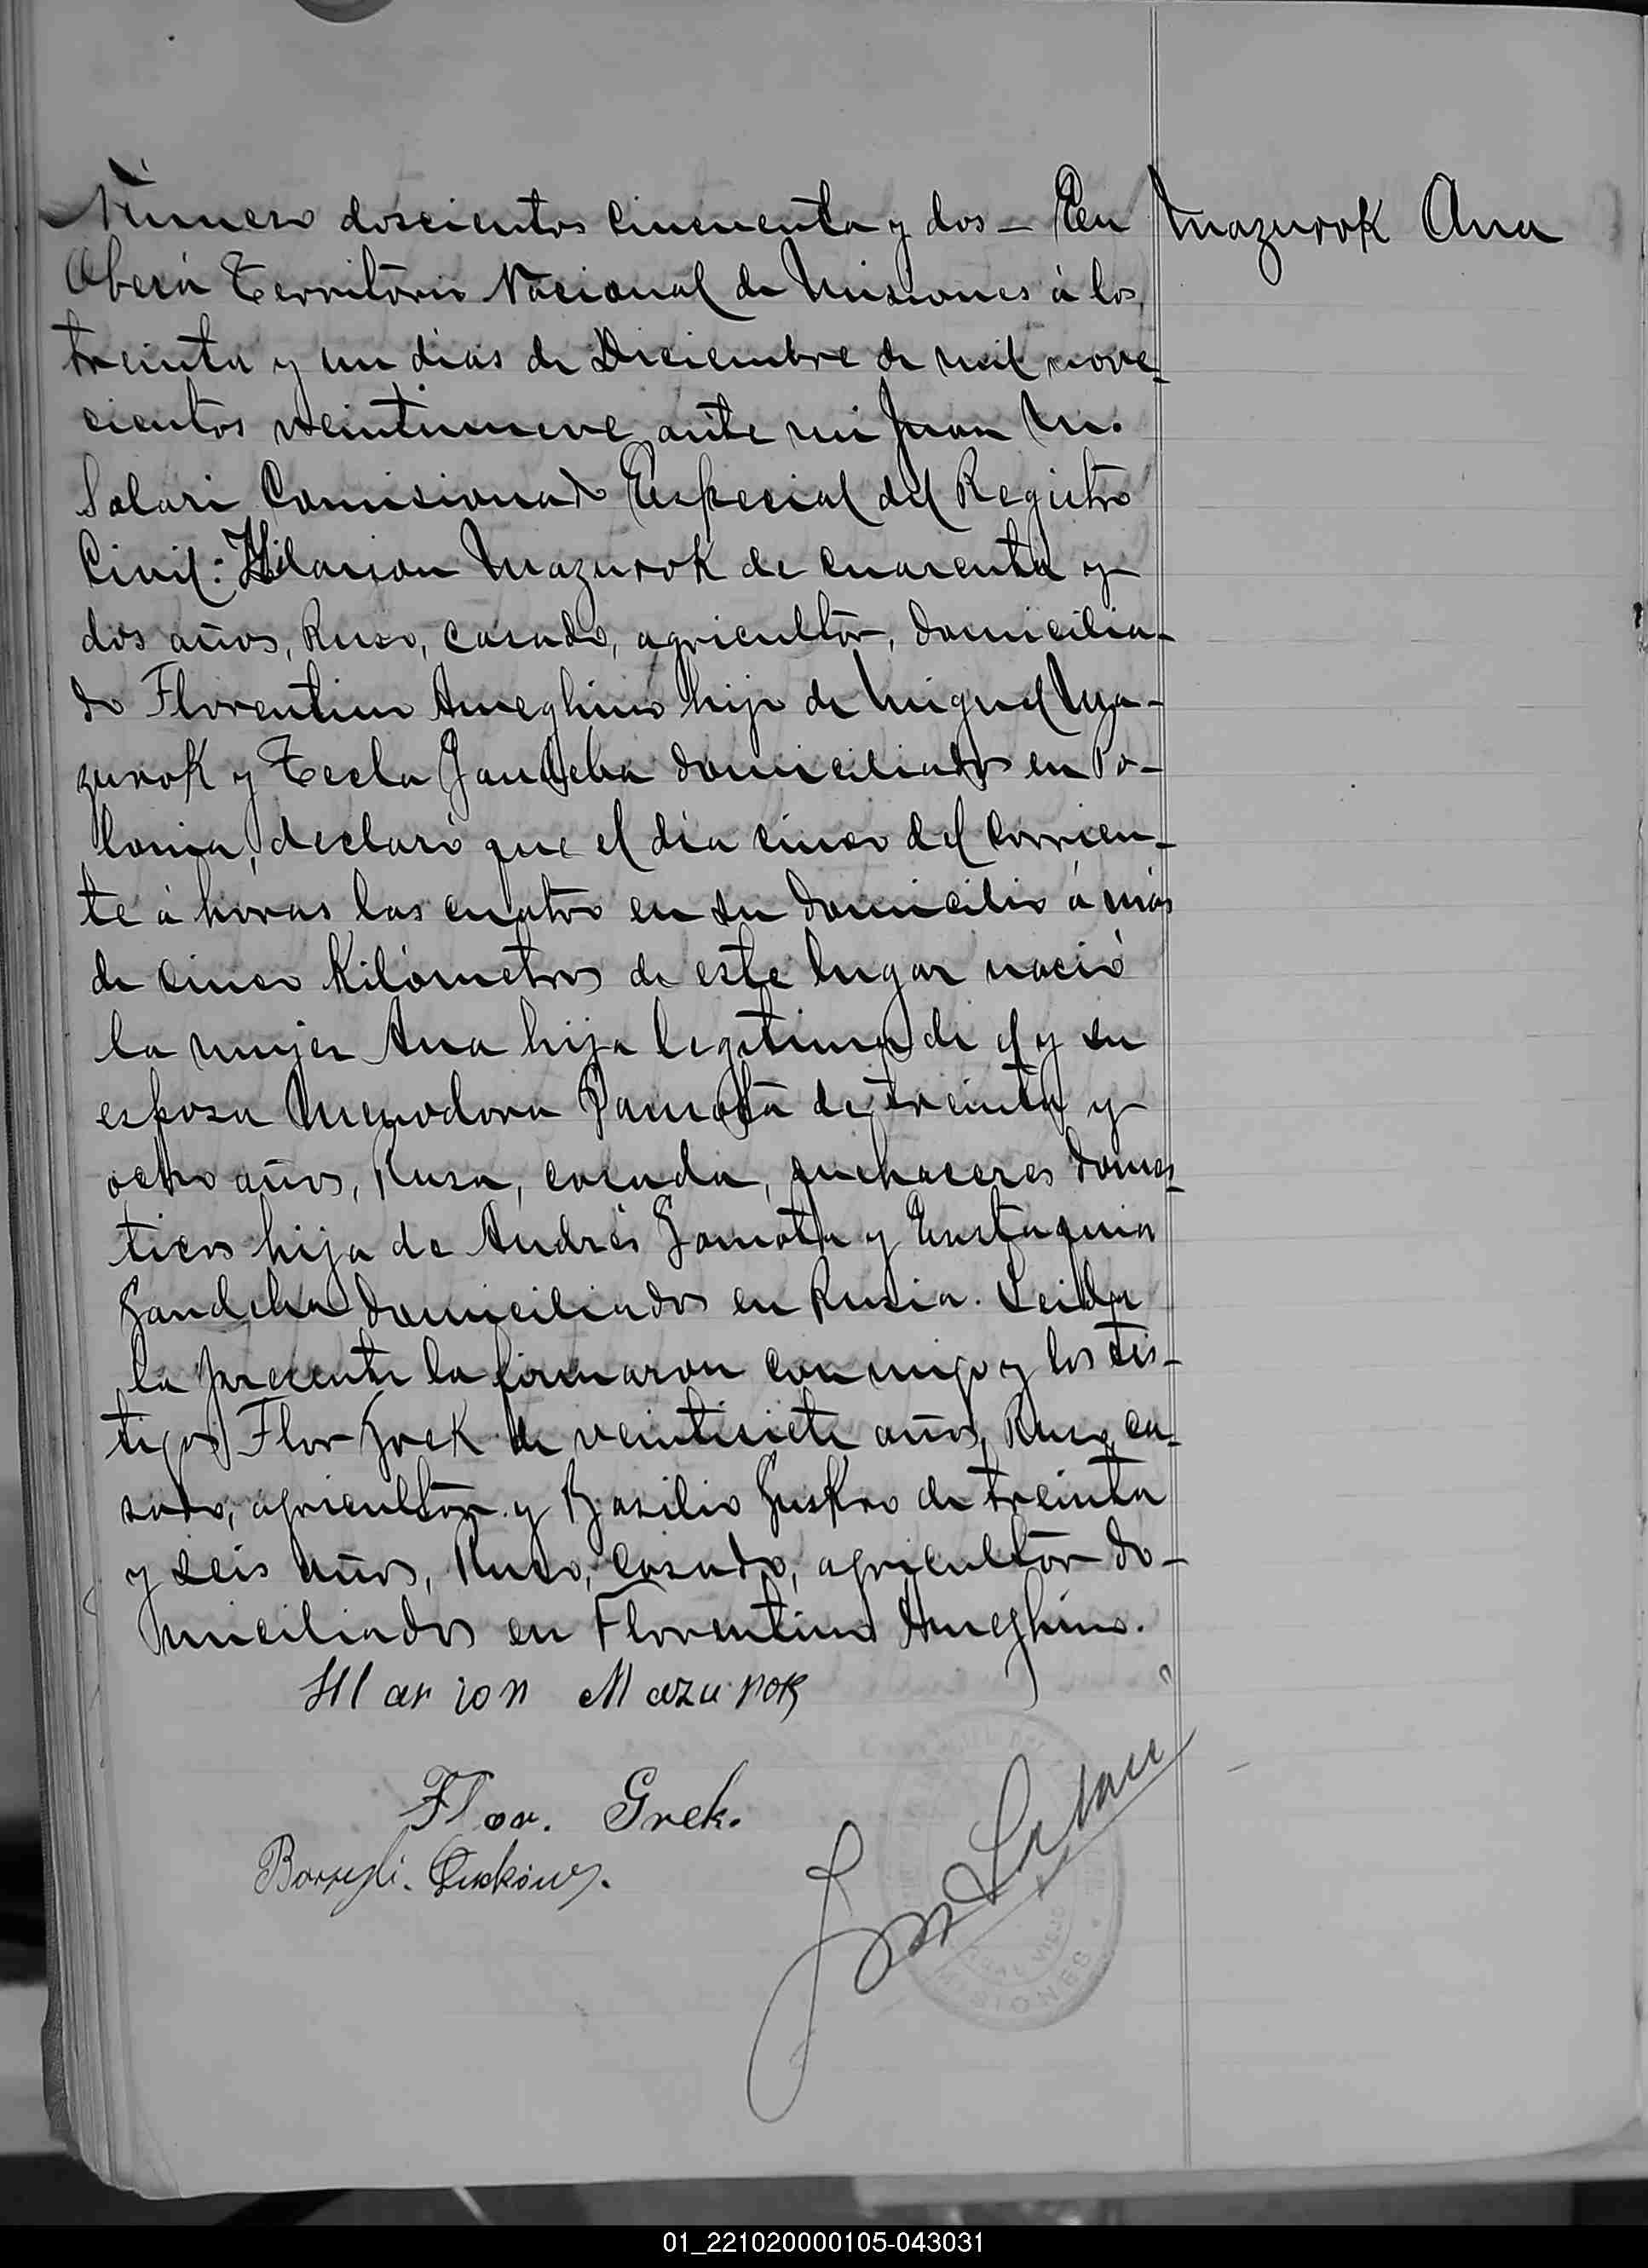 Número doscientos cincuenta y dos — En
Mazurok Ana
Oberá Territorio Nacional de Misiones á los
treinta y un dias de Diciembre de mil nove-
cientos veintinueve ante mi Juan M.
Solari Comisionado Especial del Registro
Civil: Hilarion Mazurok de cuarenta y
dos años, Ruso, casado, agricultor, domicilia-
do Florentino Ameghino hijo de Miguel Ma-
zurok y Tecla domiciliados en Po-
lonia, declaró que el día cinco del corrien-
te á horas las cuatro en su domicilio á más
de cinco Kilómetros de este lugar nació
la mujer Ana hija legitima de el y su
esposa Menodora de treinta y
ocho años, Rusa, casada, quehaceres domes-
ticos hija de Andrés y Eustaquia
domiciliados en Rusia. Leida
la presente la firmaron conmigo y los tes-
tigos Flor de veintisiete años, Ruso, ca-
sado, agricultor y Basilio de treinta
y seis años, Ruso, casado, agricultor do-
miciliados en Florentino Ameghino.
Ilarion Mazurok
Flor. Grek.
MISIONES
01_221020000105-043031